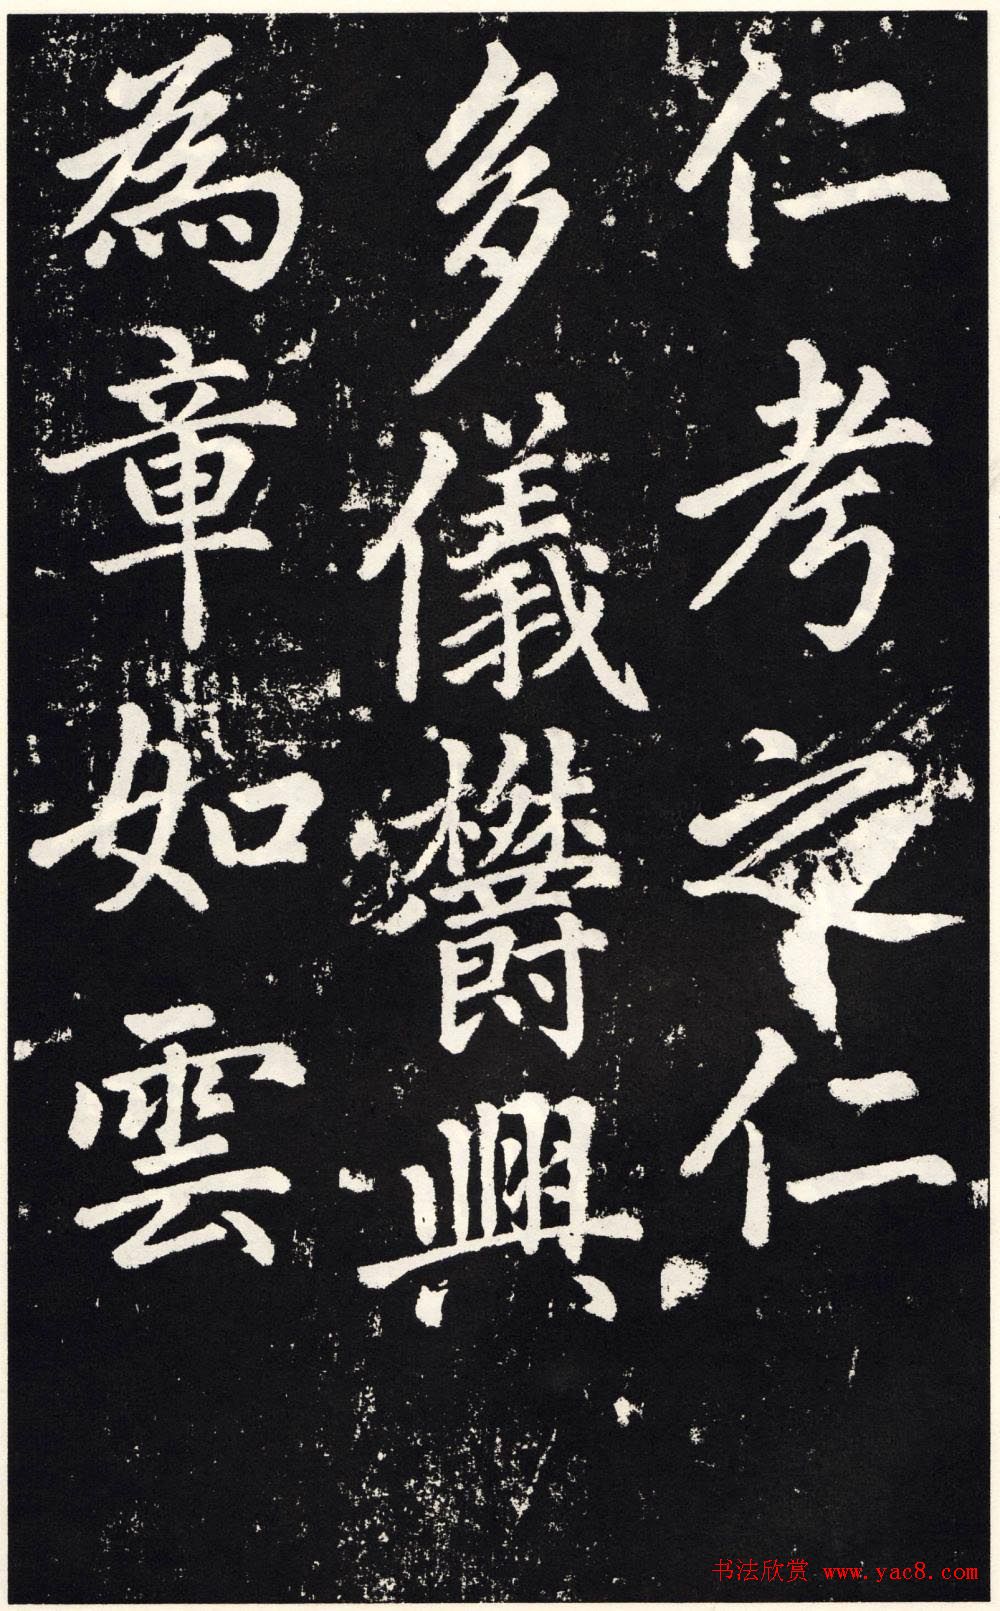 仁考之仁
多儀欝興
為章如雲
书法欣赏 www.yac8.com